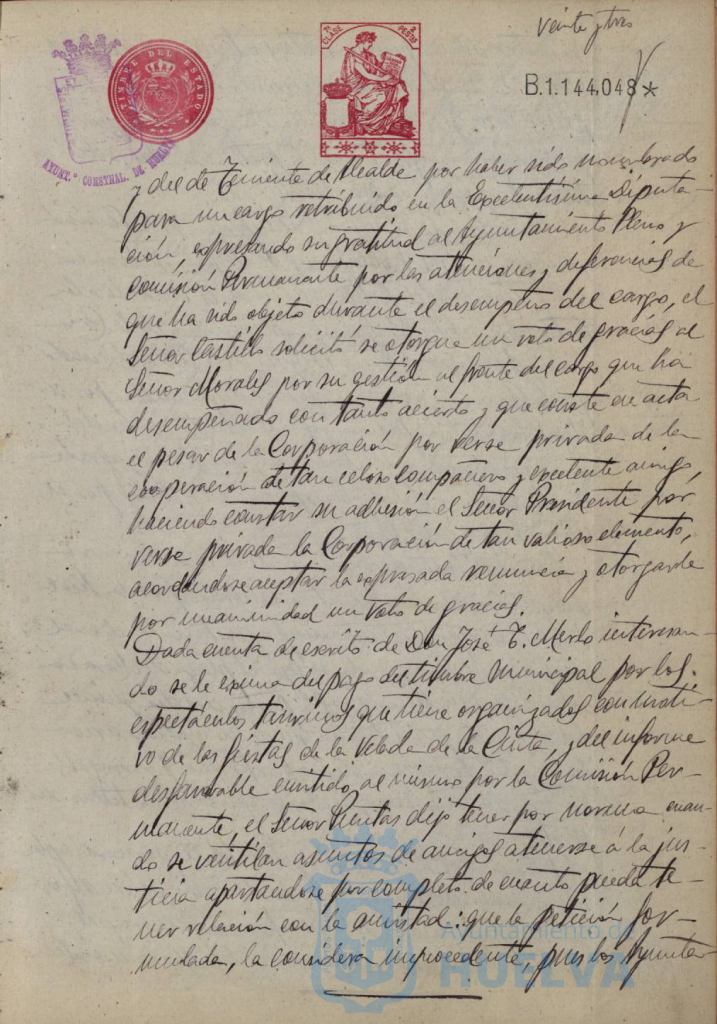 Veinte y tres
7ª CLASE 2 PESETAS
B.1.144,048 *
TIMBRE DEL ESTADO
AYUNT.º CONSTNAL. DE HUELVA
y del de Teniente de Alcalde por haber sido nombrado
para un cargo retribuido en la Excelentísima Diputa-
ción, expresando su gratitud al Ayuntamiento Pleno y
Comisión Permanente por las atenciones y deferencias de
que ha sido objeto durante el desempeño del cargo, el
Señor Castillo solicitó se otorgue un voto de gracias al
Señor Morales por su gestión al frente del cargo que ha
desempeñado con tanto acierto y que conste en acta
el pesar de la Corporación por verse privada de la
cooperación de tan celoso compañero y excelente amigo,
haciendo constar su adhesión el Señor Presidente por
verse privada la Corporación de tan valioso elemento,
acordandose aceptar la expresada renuncia y otorgarle
por unanimidad un voto de gracias.
Dada cuenta de escrito de Don José E. Merlo interesan-
do se le exima del pago del timbre municipal por los
espectáculos taurinos que tiene organizados con moti-
vo de las fiestas de la Velada de la Cinta, y del informe
desfavorable emitido al mismo por la Comisión Per-
manente, el Señor dijo tener por norma cuan-
do se ventilan asuntos de amigos atenerse á la jus-
ticia apartandose por completo de cuanto pueda te-
ner relación con la amistad: que la petición for-
mulada, la considera improcedente, pues los Ayunta-
Ayuntamiento de
HUELVA